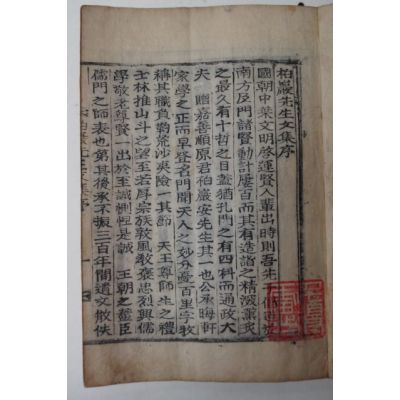 柏巖先生文集序
國朝中葉文明啓運賢人輩出時則吾先
南方及門諸賢動計屢百而其有造詣之精
之最久有十哲之目蓋猶孔門之有四科而通政大
夫 贈嘉善順原君柏巖安先生其一也公承晦軒
家學之正而早登名門聞天人之妙分憂百里字牧
稱其職負芻荒沙夷險一其節 天王尊師生之禮
士林推山斗之望至若厚宗族敦風教褒忠烈興儒
學敬老尊賢一出於至誠惻怛是誠 王朝之藎臣
儒門之師表也第其後承不振三百年間遺文散佚